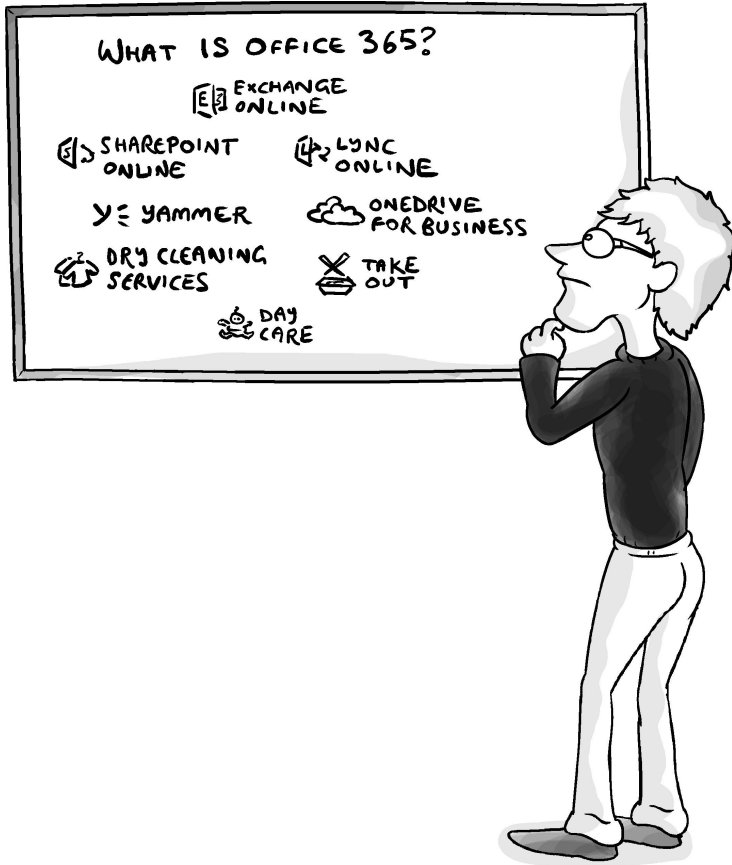 WHAT IS OFFICE 365?
EXCHANGE
ONLINE
SHAREPOINT
ONLINE
LYNC
ONLINE
YAMMER
ONEDRIVE
FOR BUSINESS
DRY CLEANING
SERVICES
TAKE
OUT
DAY
CARE